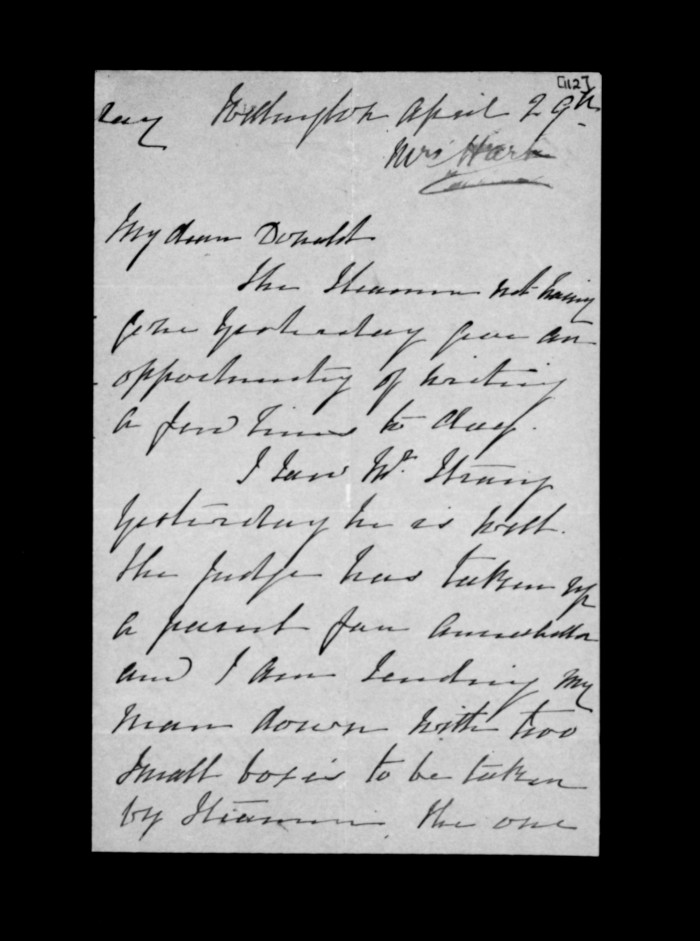 [112]
Wellington April 29th
Mrs Hart
My dear Donald
The Steamer not having
gone yesterday gives an
opportunity of writing
a few lines to day.
I saw Mr. Strang
yesterday he is well.
The Judge has taken up
a parcel for
and I am sending my
man down with two
small boxes to be taken
by Steamer. The one